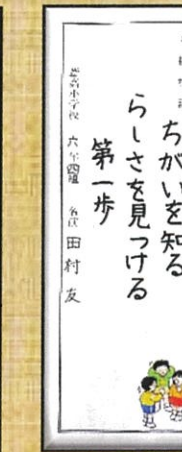 ちがいを知る
らしさを見つける
第一歩
小学校 六年四組 名前 田村 友